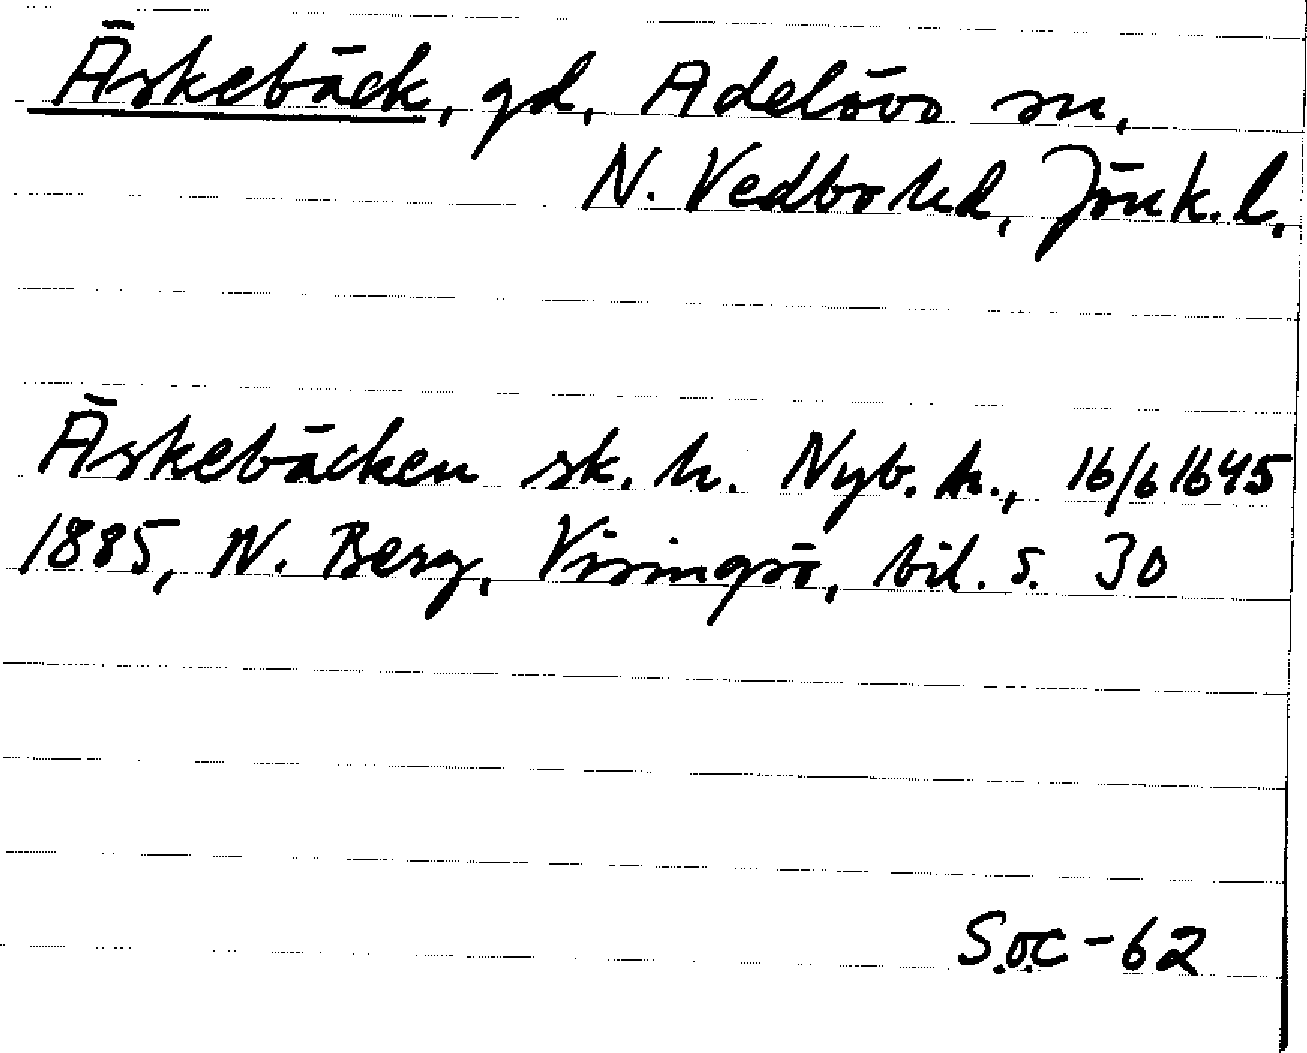 Äskebäck, gd, Adelövs sn,
N. Vedbo hd, Jönk. l.
Äskebäcken sk. h. Nyb. h., 16/6 1645
1885, N. Berg, Visingsö, bil. s. 30
S.o.C-62